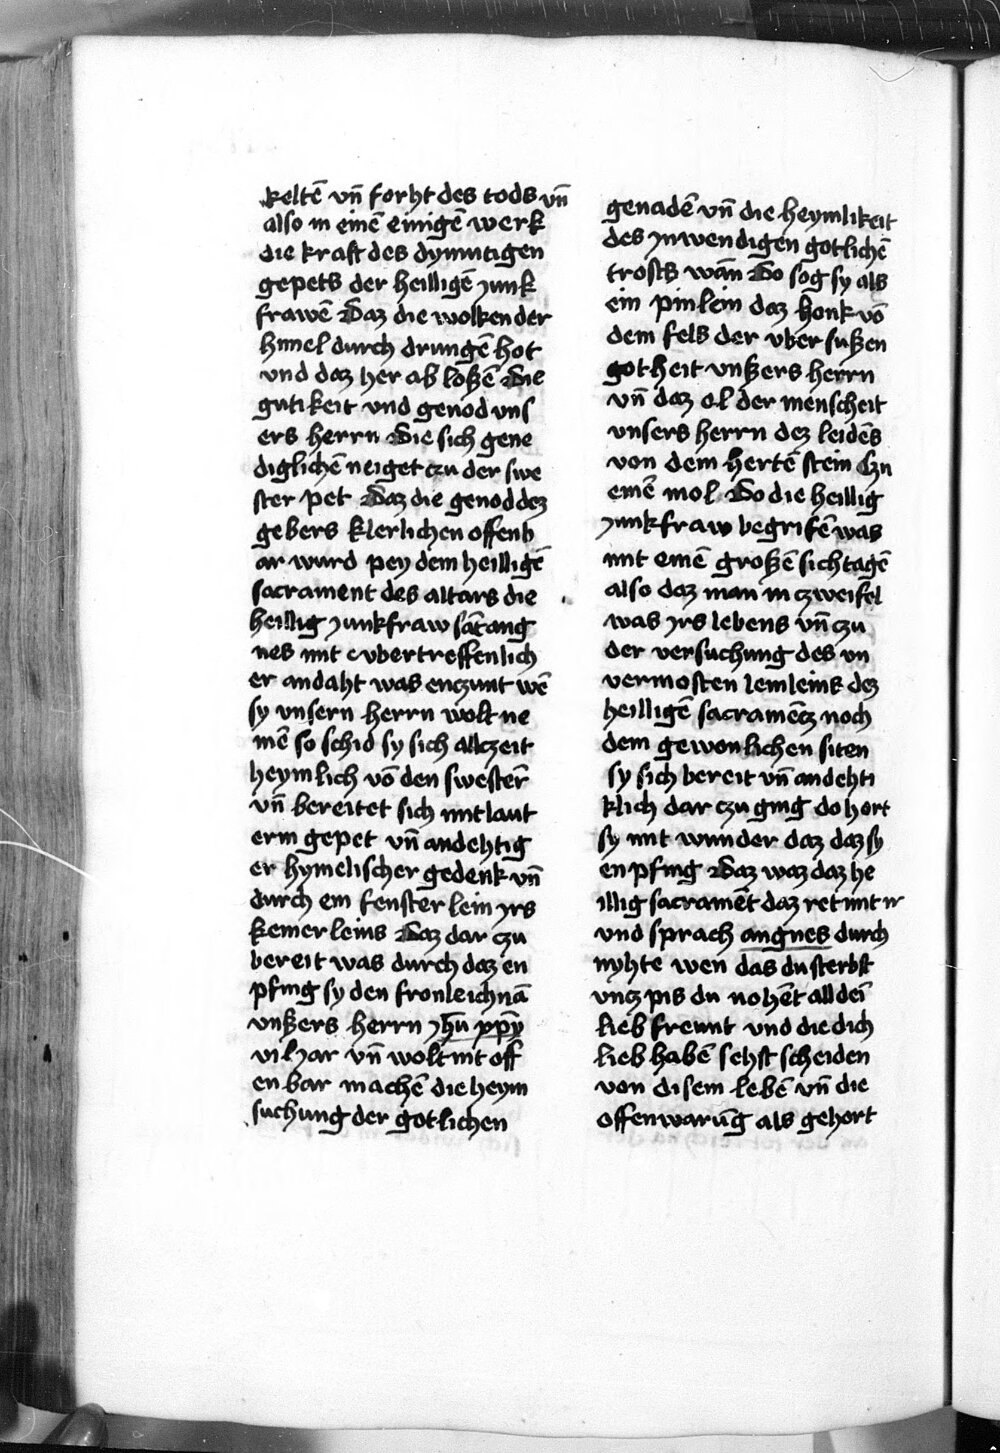 keltē vn̄ forht des tods vn̄
also in einē einigē werk
die kraft des dymutigen
gepets der heilligē yunk
frawē Daz die wolken der
himel durch drungē hot
vnd daz her ab loßē Die
gutikeit vnd genod vns
ers herrn Die sich gene
diglichē neiget czu der swe
ster pet Daz die genod dez
gebers klerlichen offenb
ar wurd pey dem heilligē
sacrament des altars die
heillig yunkfraw sāt ang
nes mit vbertreffenlich
er andaht was enczunt wē
sy vnsern herrn wolt ne
mē so schid sy sich allczeit
heymlich vō den swesterē
vn̄ bereitet sich mit laut
erm gepet vn̄ andehtig
er hymelischer gedenk vn̄
durch ein fensterlein yrs
kemerleins Daz dar czu
bereit was durch daz en
pfing sy den fronleichnā
vnßers herrn yhū xp̄y
vn̄ wolt nit off
enbar machē die heym
suchung der gotlichen
genadē vn̄ die heymlikeit
des ynwendigen gotlichē
trosts wān Do sog sy als
ein pinlein daz honk vō
dem fels der vber sußen
gotheit vnßers herrn
vn̄ daz ol der menscheit
vnsers herrn dez leidēs
von dem hertē stein Czu
einē mol Do die heillig
yunkfraw begrifē was
mit einē großē sichtagē
also daz man in czweifel
was yrs lebens vn̄ czu
der versuchung des vn
vermosten lemleins dez
heilligē sacramētz noch
dem gewonlichen siten
sy sich bereit vn̄ andehti
klich dar czu ging do hort
sy mit wunder daz daz sy
enpfing Daz waz daz he
illig sacramēt daz ret mit ir
vnd sprach angnes durch
nyhte wen das du sterbst
vncz pis du nohēt all dei
lieb freunt vnd die dich
lieb habē sehst scheiden
von disem lebē vn̄ die
offenwarūg als gehort